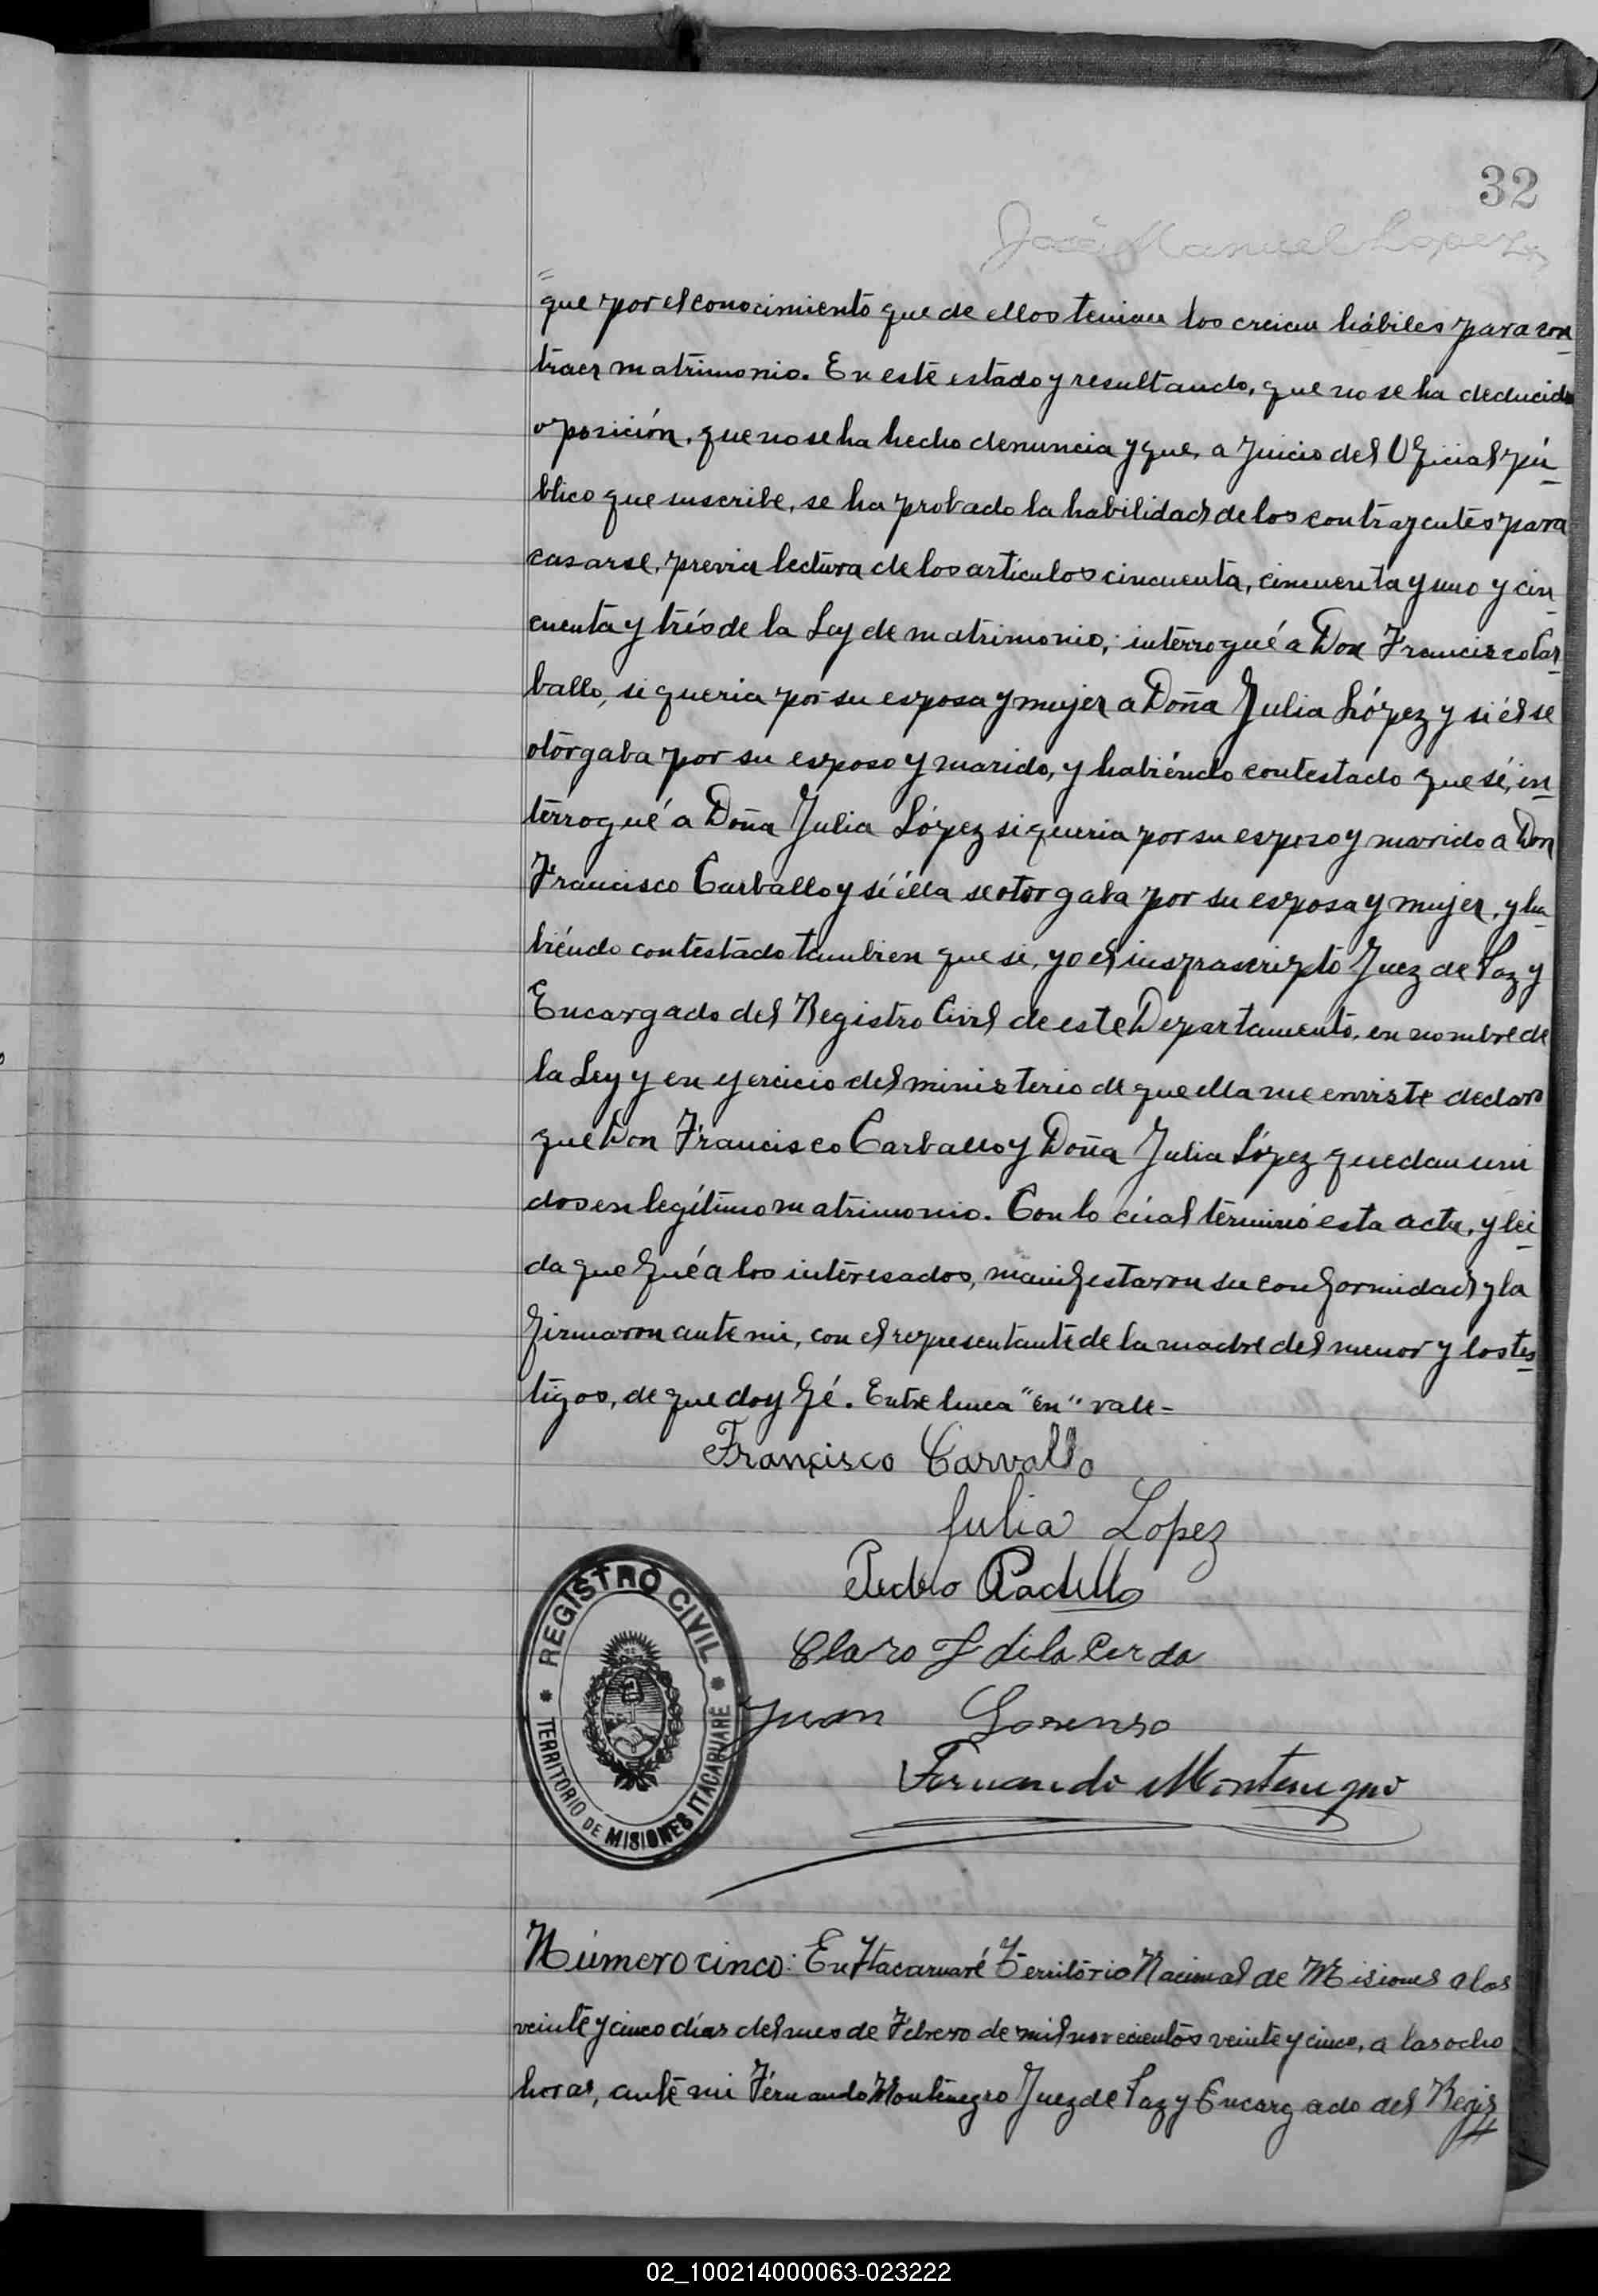 32
José Manuel Lopez
que por el conocimiento que de ellos tenian los creian hábiles para con
traer matrimonio. En este estado y resultando, que no se ha deducido
oposición, que no se ha hecho denuncia y que, a juicio del Oficial pú
blico que suscribe, se ha probado la habilidad de los contrayentes para
casarse, previa lectura de los articulos cincuenta, cincuenta y uno y cin
cuenta y trés de la Ley de matrimonio, interrogué a Don Francisco Car
ballo, si queria por su esposa y mujer a Doña Julia López y si él se
otorgaba por su esposo y marido, y habiéndo contestado que sí, in
terrogué a Doña Julia López si queria por su esposo y marido a Don
Francisco Carballo y sí élla se otorgaba por su esposa y mujer, y ha
biéndo contestado tambien que si, yo el insfrascripto Juez de Paz y
Encargado del Registro Civil de este Departamento, en nombre de
la Ley y en ejercicio del ministerio de que ella me enviste declaro
que Don Francisco Carballo y Doña Julia López quedan uni
dos en legítimo matrimonio. Con lo cúal terminó esta acta, y lei
da que fué a los interesados, manifestaron su conformidad y la
firmaron ante mi, con el representante de la madre del menor y los tes
tigos, de que doy fé. Entre linea "en" vale=
Francisco Carvallo
Julia Lopez
Pedro Padillo
Claro F de la Cerda
Juan Lorenso
Fernando Montenegro
REGISTRO CIVIL
TERRITORIO DE MISIONES ITACARUARÉ
Número cinco: En Itacaruaré Territorio Nacional de Misiones a los
veinte y cinco días del mes de Febrero de mil novecientos veinte y cinco, a las ocho
horas, ante mi Fernando Montenegro Juez de Paz y Encargado del Regis
02_100214000063-023222